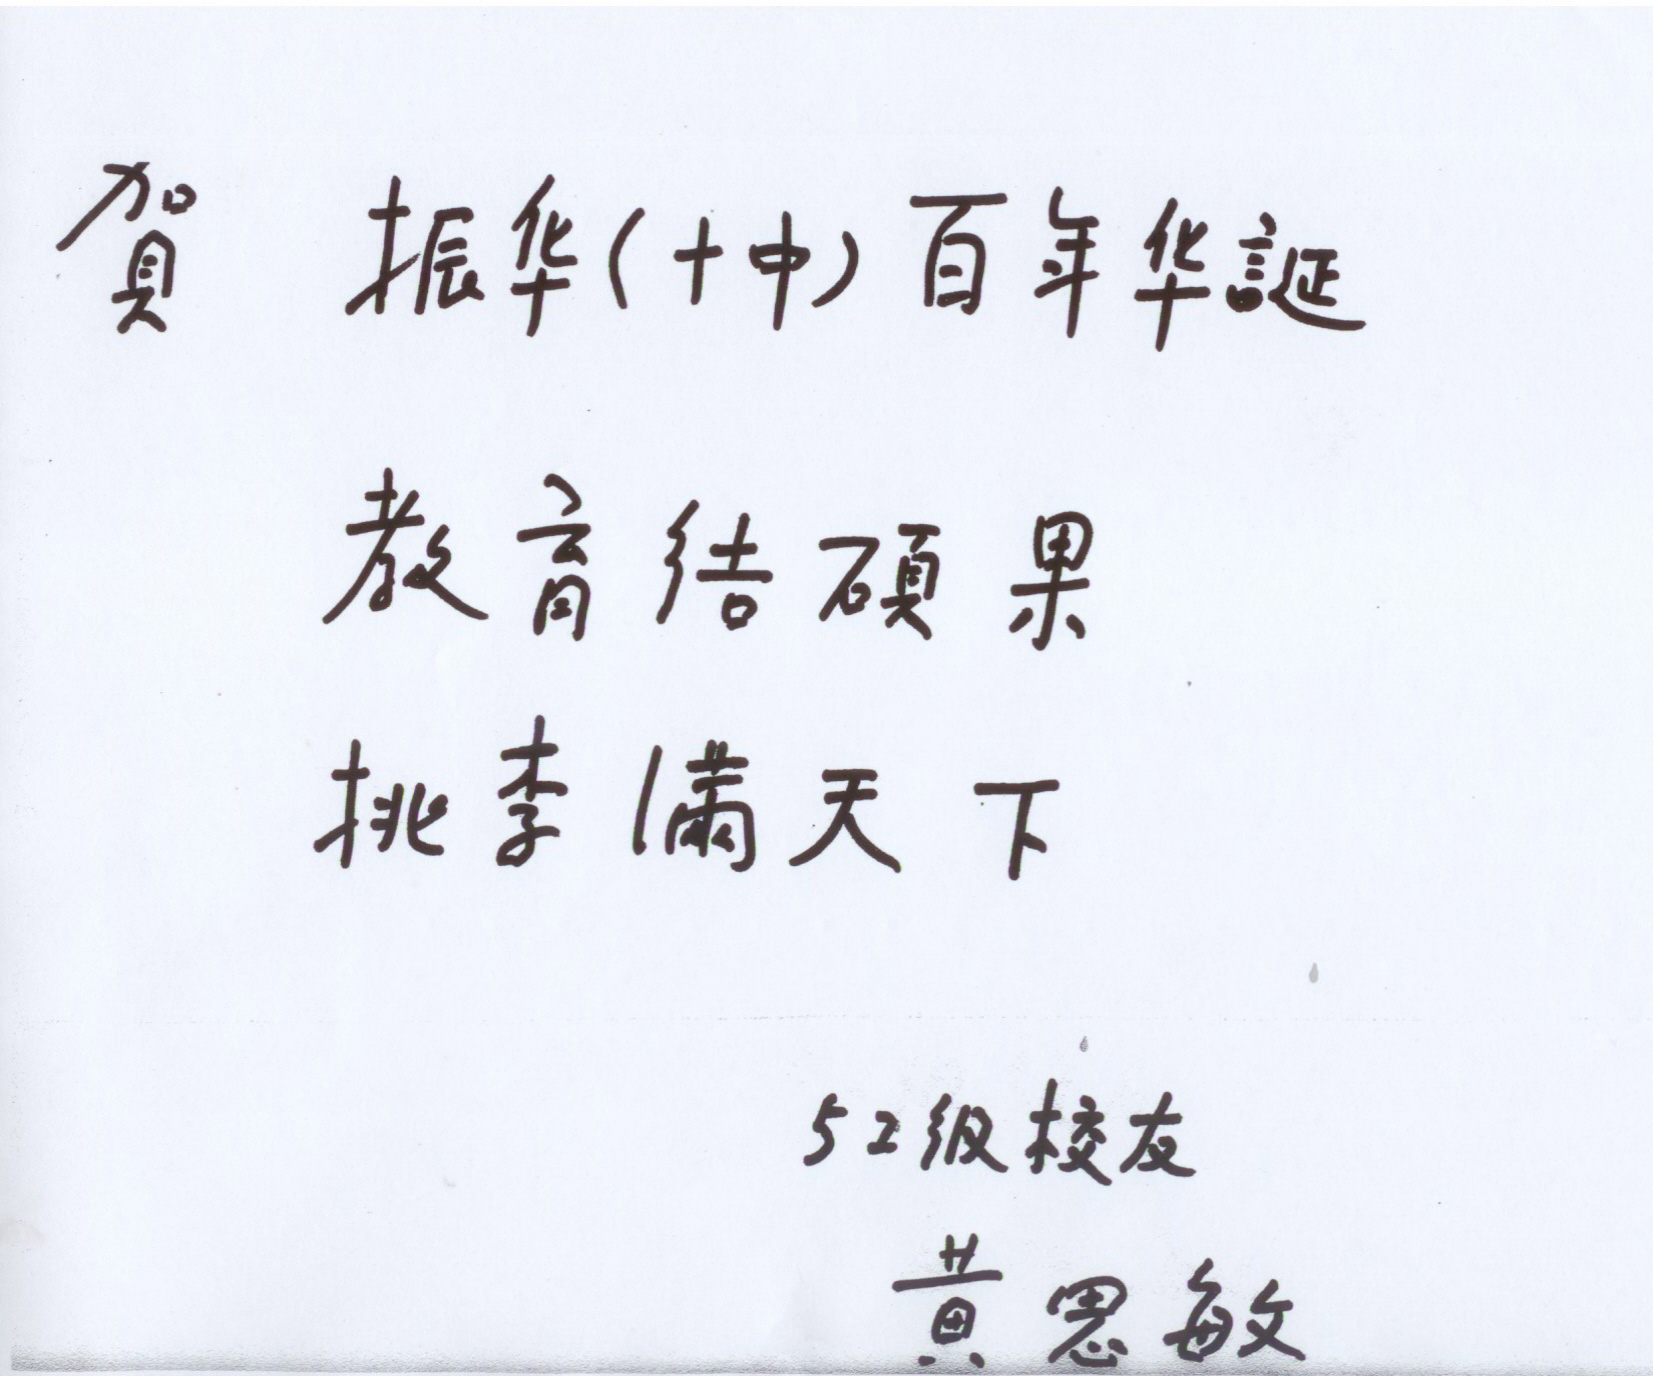 賀 振华(十中)百年华誕
教育结碩果
挑李满天下
52级校友
黄思敏